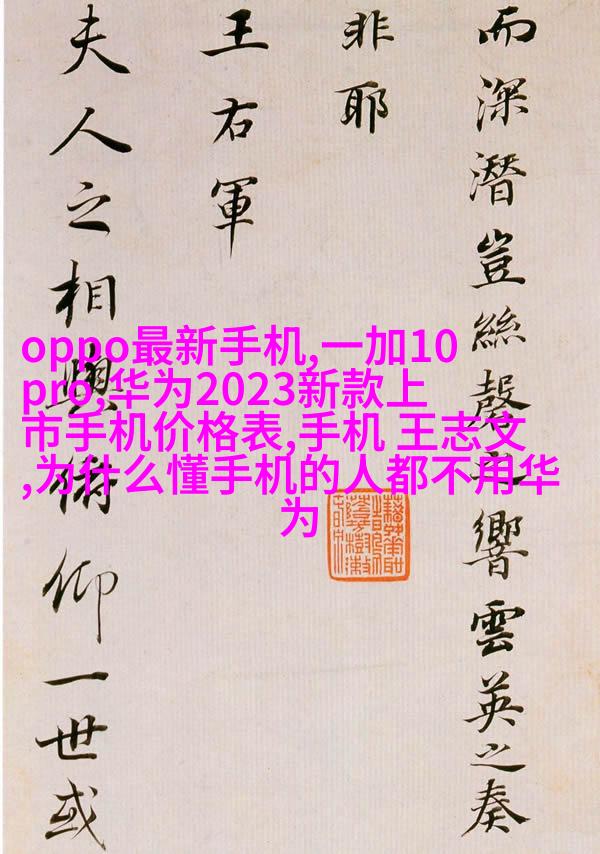 而深潛豈絲磬之響雲英之奏
非耶
王右軍
夫人之相與俯仰一世或
oppo最新手机,一加10
pro,华为2023新款上
市手机价格表,手机 王志文
,为什么懂手机的人都不用华
为